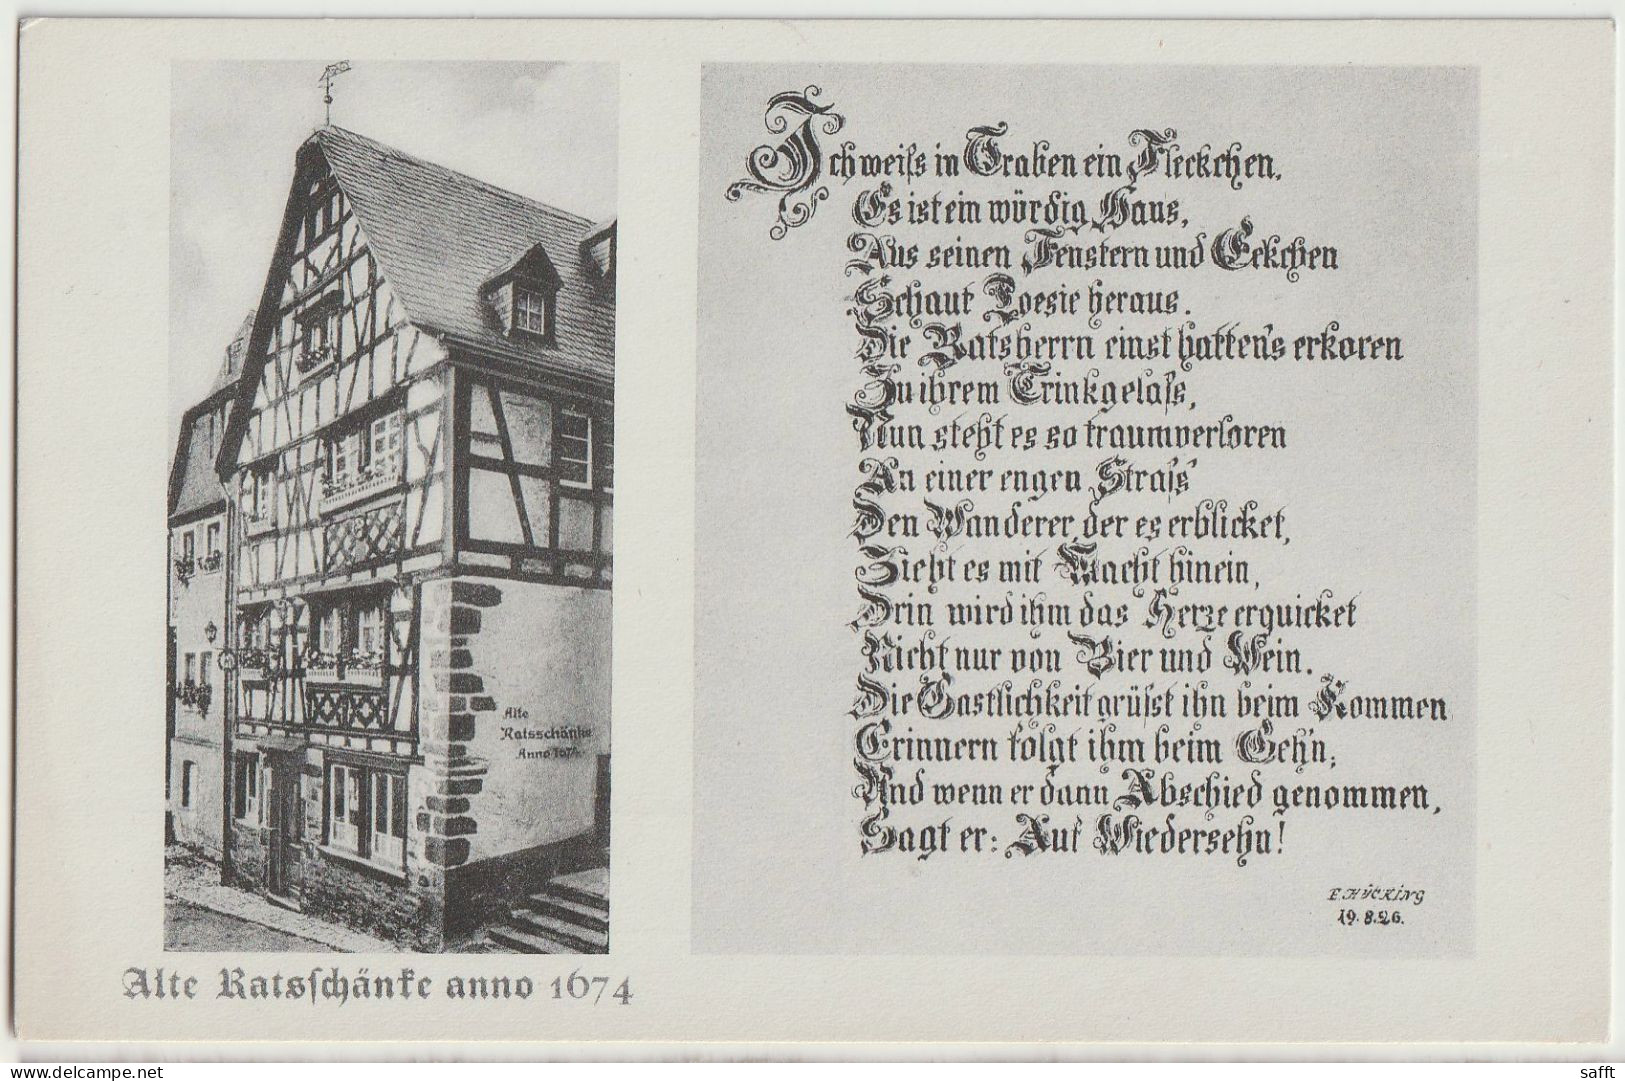 Alte
Ratsschänke
Anno 1674.
Alte Ratsschänke anno 1674
Ich weiss in Traben ein Fleckchen,
Es ist ein würdig Haus,
Aus seinen Fenstern und Eckchen
Schaut Poesie heraus.
Die Ratsherrn einst hatten's erkoren
Zu ihrem Trinkgelass,
Nun steht es so traumverloren
An einer engen Strass'
Den Wanderer, der es erblicket,
Zieht es mit Macht hinein,
Drin wird ihm das Herze erquicket
Nicht nur von Bier und Wein.
Die Gastlichkeit grüsst ihn beim Kommen
Erinnern folgt ihm beim Geh'n;
Und wenn er dann Abschied genommen,
Sagt er: Auf Wiedersehn!
E. HÜCKING
19.8.26.
delcampe.net
safft